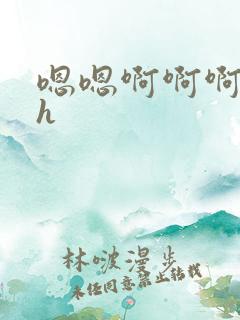 嗯嗯啊啊啊
h
林啵漫步
未经同意禁止转载